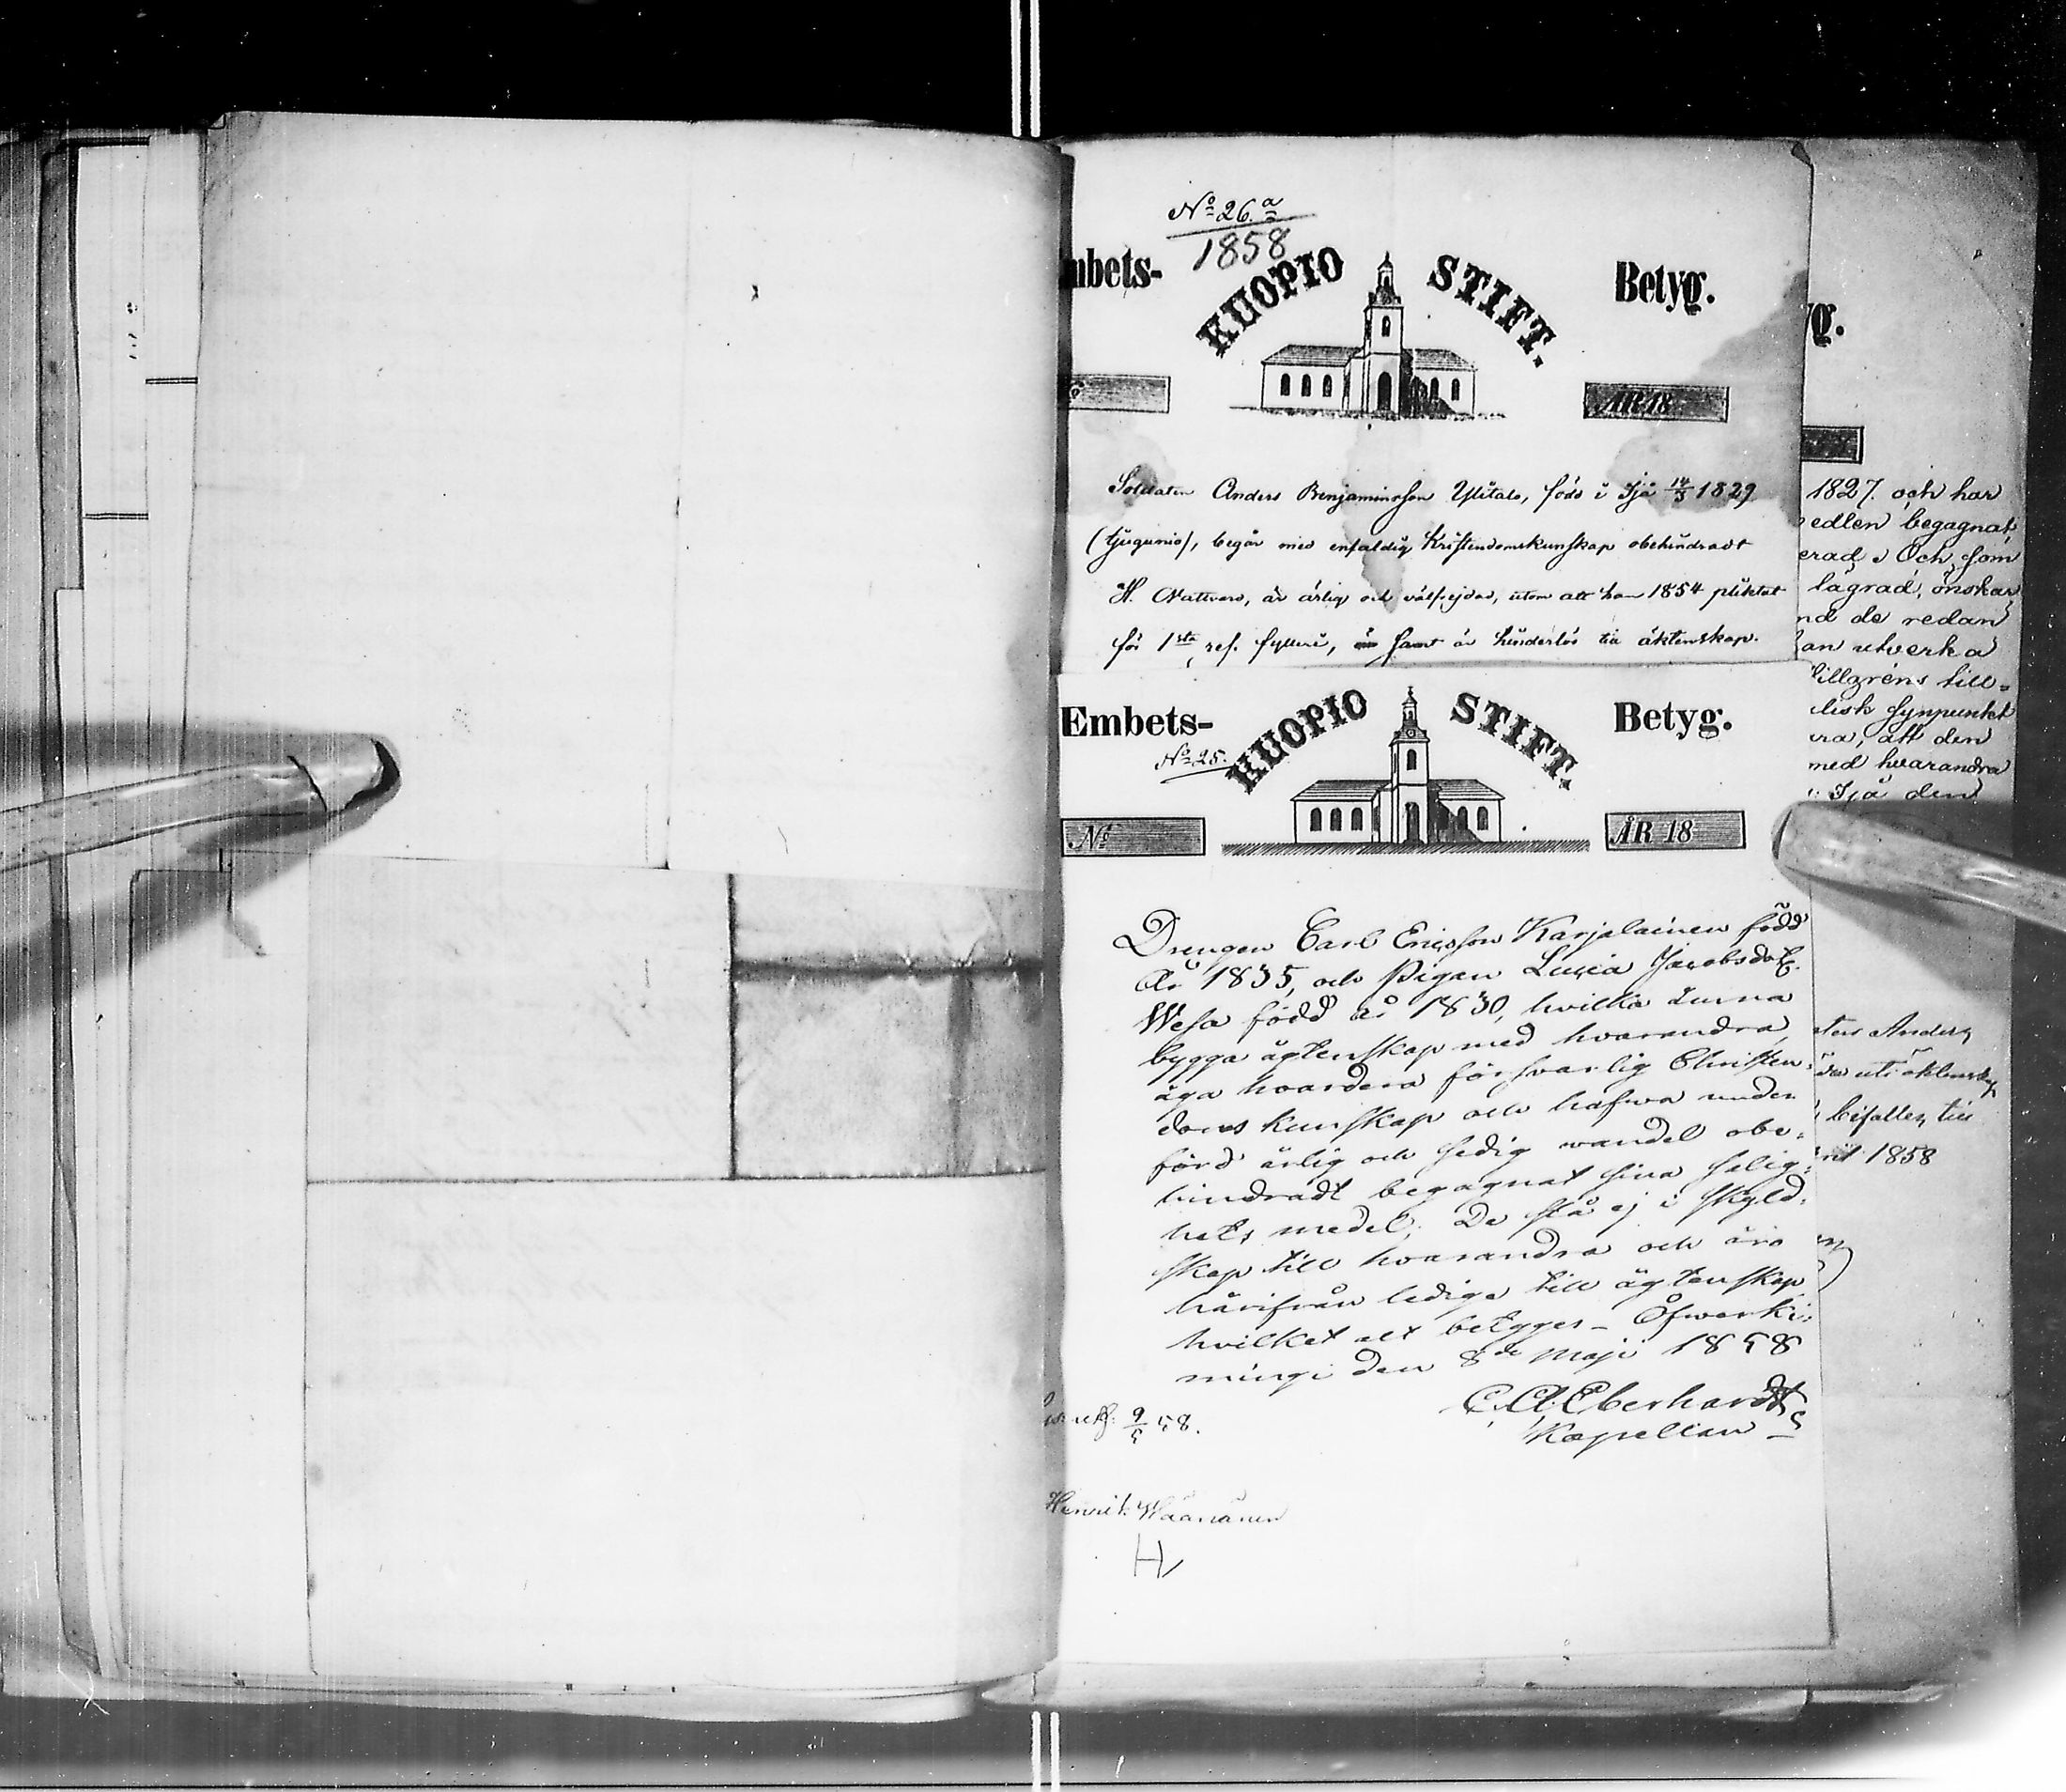 No 26.a
1858
mbets-
KUOPIO STIFT.
Betyg.
ÅR 18
Soldaten Anders Benjaminsson Ylitalo, född i Ijå 14/3 1829
(tjugunio), begår med enfaldig Kristendomskunskap obehindradt
H. Nattvard, är ärlig och välfrejdad, utom att han 1854 pliktat
för 1sta res. fylleri, samt är hinderlös till äktenskap.
Embets-
No 25.
KUOPIO STIFT.
Betyg.
No
ÅR 18
Drengen Carl Ericsson Karjalainen född
År 1835, och Pigan Lucia Jacobsdotr.
Wesa född år 1830, hvilka kunna
bygga ägtenskap med hvarandra,
äga hvardera försvarlig Christen-
doms kunskap och hafwa under
förd ärlig och sedig wandel obe-
hindradt begagnat sina salig-
hets medel. De stå ej i skyld-
skap till hvarandra och äro
härifrån lediga till ägtenskap
hvilket alt betyges – Öfwerki-
mingi den 8de Maji 1858
C. A. Eberhardt
Kapellan
9/5 58.
Henrik Wäänänen
H
yg.
1827. och har
edlen begagnat,
erad. Och som
lägrad, önskar
nd de redan
an utverka
illgréns till-
disk synpunkt
vra, att den
med hvarandra
Ijå den
ten Anders
bifalles till
ril 1858